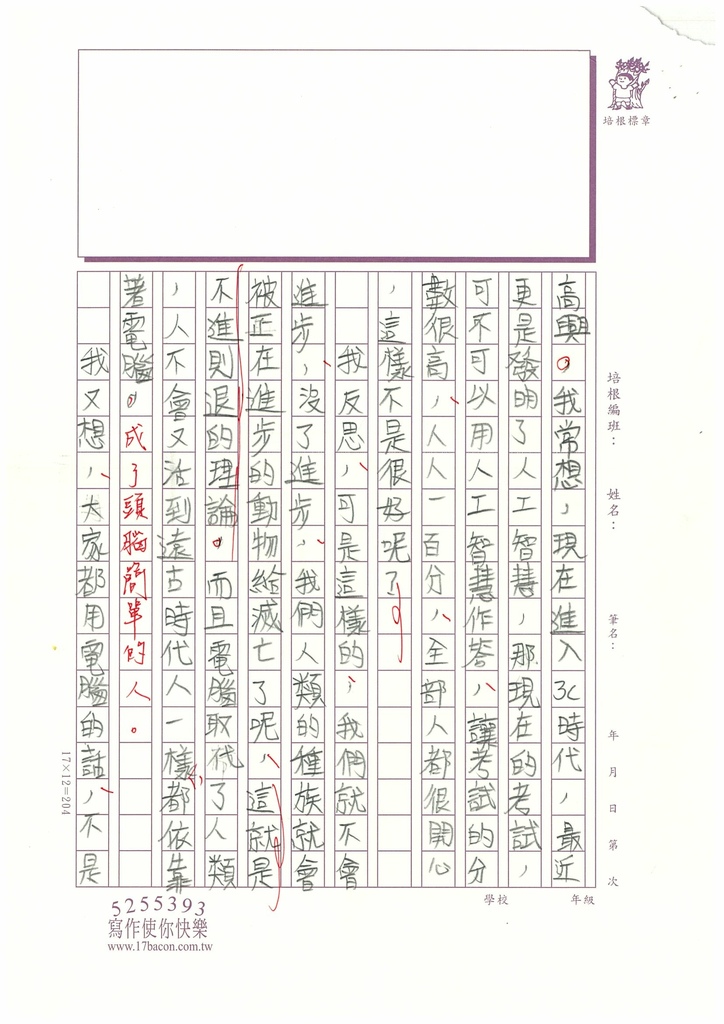 培根標章
培根編班：
姓名：
筆名：
年 月 日 第 次
學校
年級
高興。我常想，現在進入3C時代，最近
更是發明了人工智慧，那現在的考試，
可不可以用人工智慧作答，讓考試的分
數很高，人人一百分，全部人都很開心
，這樣不是很好呢了
我反思，可是這樣的，我們就不會
進步，沒了進步，我們人類的種族就會
被正在進步的動物給滅亡了呢，這就是
不進則退的理論。而且電腦取代了人類
，人不會又活到遠古時代人一樣，都依靠
著電腦。成了頭腦簡單的人。
我又想，大家都用電腦的話，不是
17×12=204
5255393
寫作使你快樂
www.17bacon.com.tw